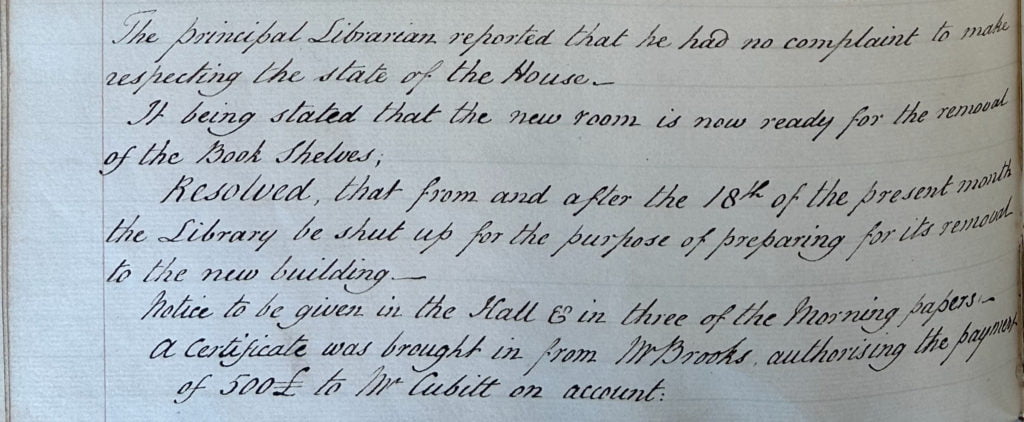 The principal Librarian reported that he had no complaint to make
respecting the state of the House._
It being stated that the new room is now ready for the removal
of the Book Shelves;
Resolved, that from and after the 18th of the present month
the Library be shut up for the purpose of preparing for its removal
to the new building._
Notice to be given in the Hall & in three of the Morning papers._
A Certificate was brought in from Mr Brooks, authorising the payment
of 500£ to Mr Cubitt on account: